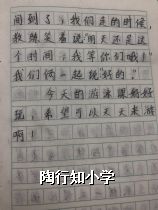 间到了，我们走的时候，
教练笑着说“明天还是这
个时间，我等你们哦！”
我们俩一起说“好的。”
今天的游泳课好好
玩，希望可以天天来游
啊！
陶行知小学